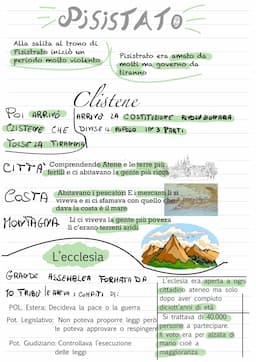 PISISTATO
Alla salita al trono di
Pisistrato iniziò un
periodo molto violento
Pisistrato era amato da
molti ma governo da
tiranno
Clistene
POI ARRIVÒ
CLISTENE CHE
TOLSE LA TIRANNIA
ARRIVÒ LA COSTITUZIONE
DIVISE IL POPOLO IN 3 PARTI
CITTÀ
Comprendende Atene e le terre più
fertili e ci abitavano la gente più ricca
COSTA
Abitavano i pescatori E i mercanti li si
viveva e si ci sfamava con quello che
dava la costa è il mare
MONTAGNA
Li ci viveva la gente più povera
li c'erano terreni aridi
L'ecclesia
GRANDE ASSEMBLEA FORMATA DA
10 TRIBÙ LE AVEVA I COMPITI DI:
POL. Estera: Decideva la pace o la guerra
Pot. Legislativo: Non poteva proporre leggi però
le poteva approvare o respingere
Pot. Giudiziario: Controllava l'esecuzione
delle leggi
L'ecclesia era aperta a ogni
cittadino ateniese ma solo
dopo aver compiuto
diciott'anni di età
Si trattava di 40.000
persone a partecipare
Il voto era per alzata di
mano cioè a
maggioranza